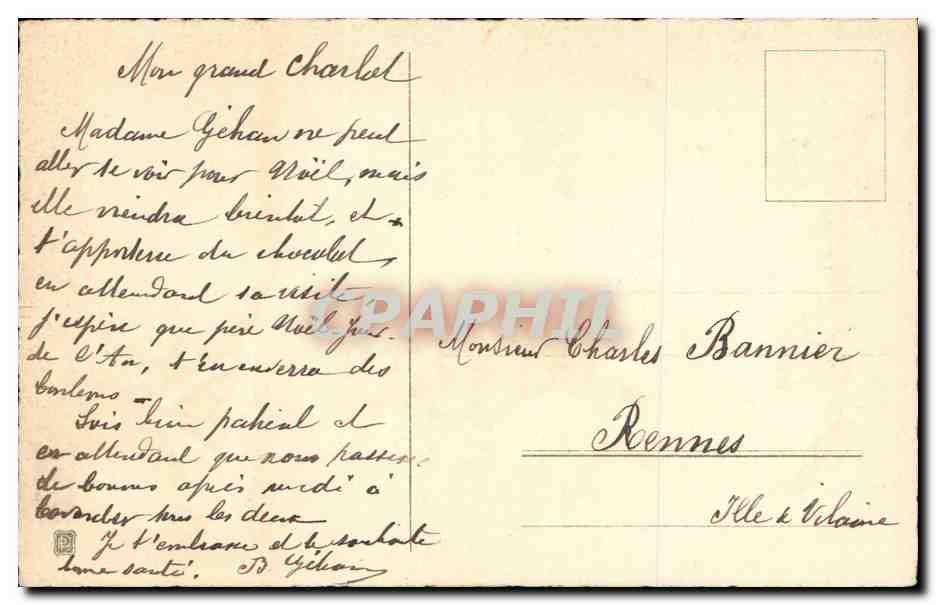 Mon grand Charlot
Madame Géhan ne peut
aller te voir pour Noël, mais
elle viendra bientôt, et
t'apportera du chocolat,
en attendant sa visite,
j'espère que père Noël-Jour
de l'An, t'en enverra des
bonbons
Sois bien patient et
en attendant que nous passions
de bonnes après midi à
bavarder tous les deux
Je t'embrasse et te souhaite
bonne santé. B Géhan
CPAPHIL
Monsieur Charles Bannier
Rennes
Ille & Vilaine